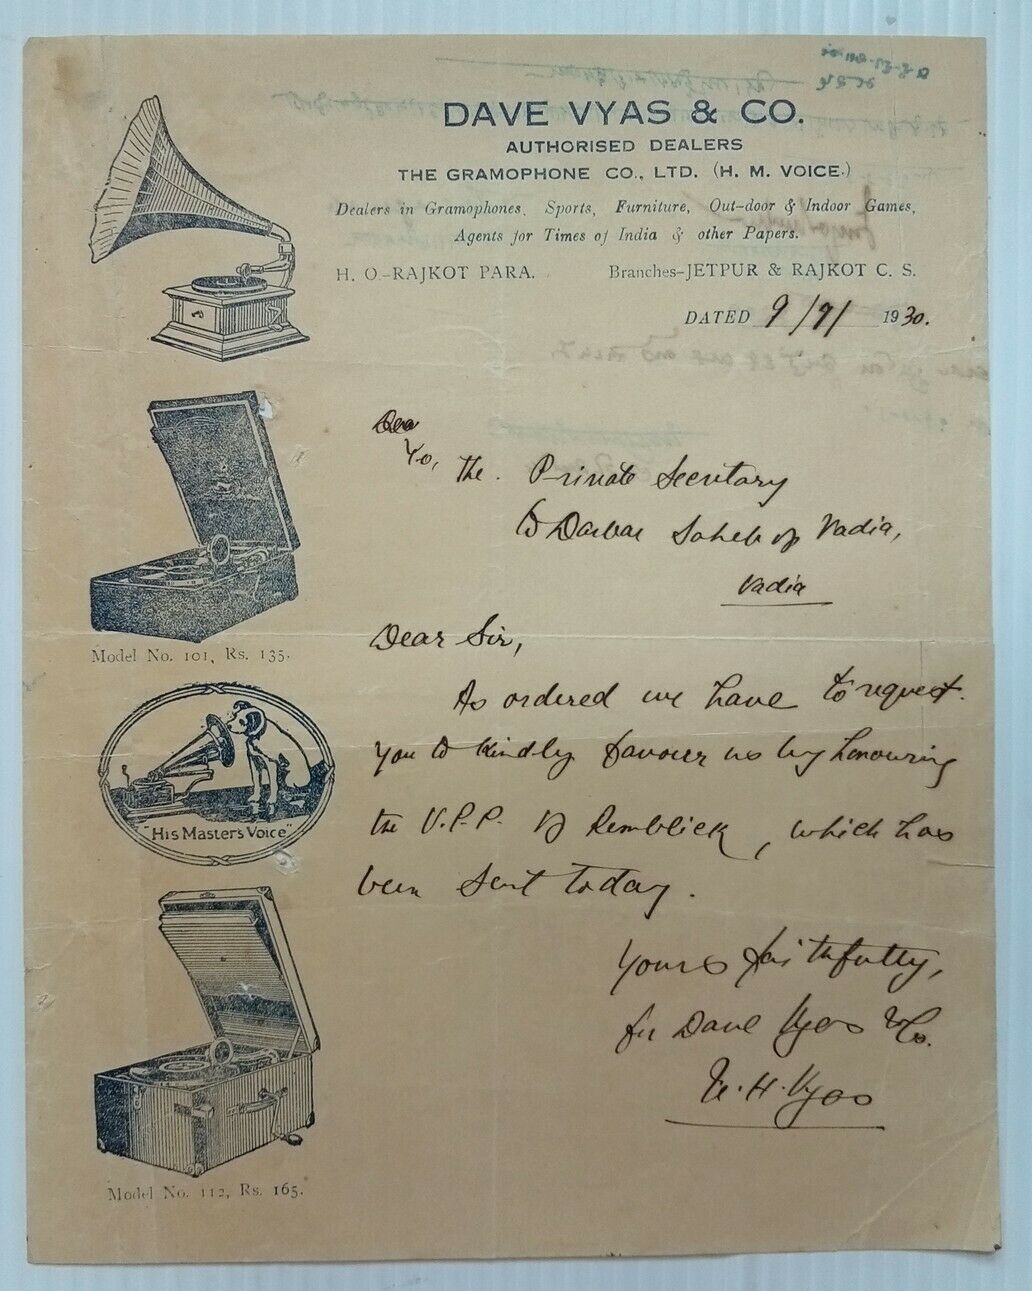 DAVE VYAS & CO.
AUTHORISED DEALERS
THE GRAMOPHONE CO., LTD. (H. M. VOICE.)
Dealers in Gramophones, Sports, Furniture, Out-door & Indoor Games,
Agents for Times of India & other Papers.
H. O.-RAJKOT PARA. Branches-JETPUR & RAJKOT C. S.
DATED 9/9/ 1930.
To, The. Private Secretary
to Darbar Saheb of Vadia,
Vadia
Dear Sir,
As ordered we have to request.
you to kindly favour us by honouring
the V.P.P. of , which has
been sent today.
Yours faithfully,
for Dave Vyas & Co.
H. Vyas
Model No. 101, Rs. 135.
"His Master's Voice"
Model No. 112, Rs. 165.